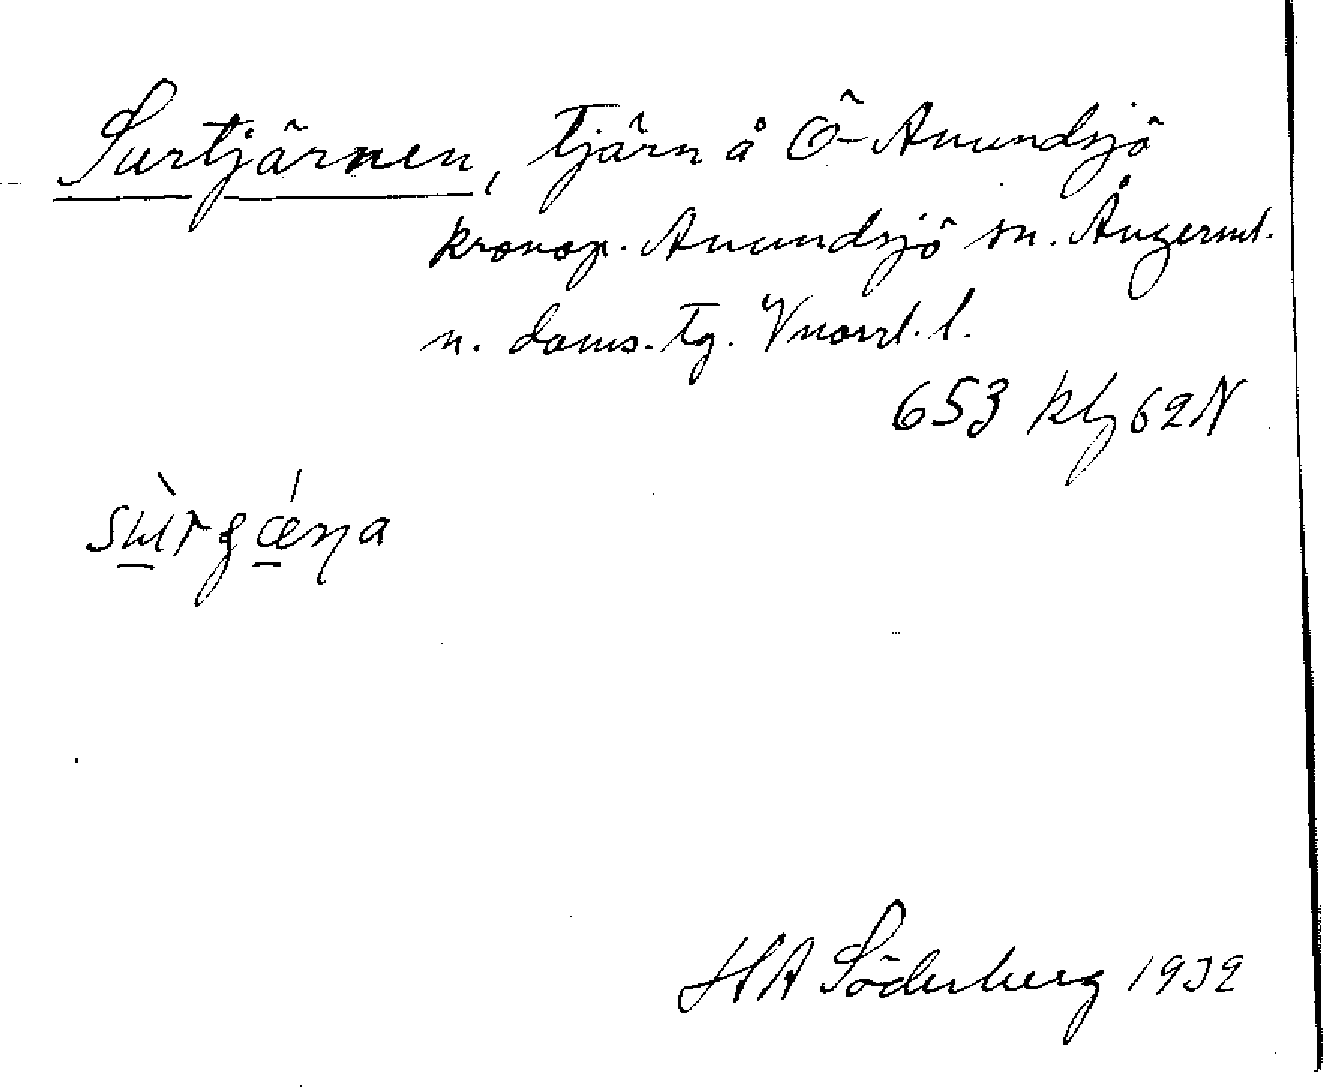 Surtjärnen, tjärn å Ö-Anundsjö
kronop. Anundsjö sn. Ångerml.
n. doms. tg. Vnorrl. l.
653 klj 62N
HA Söderberg 1932